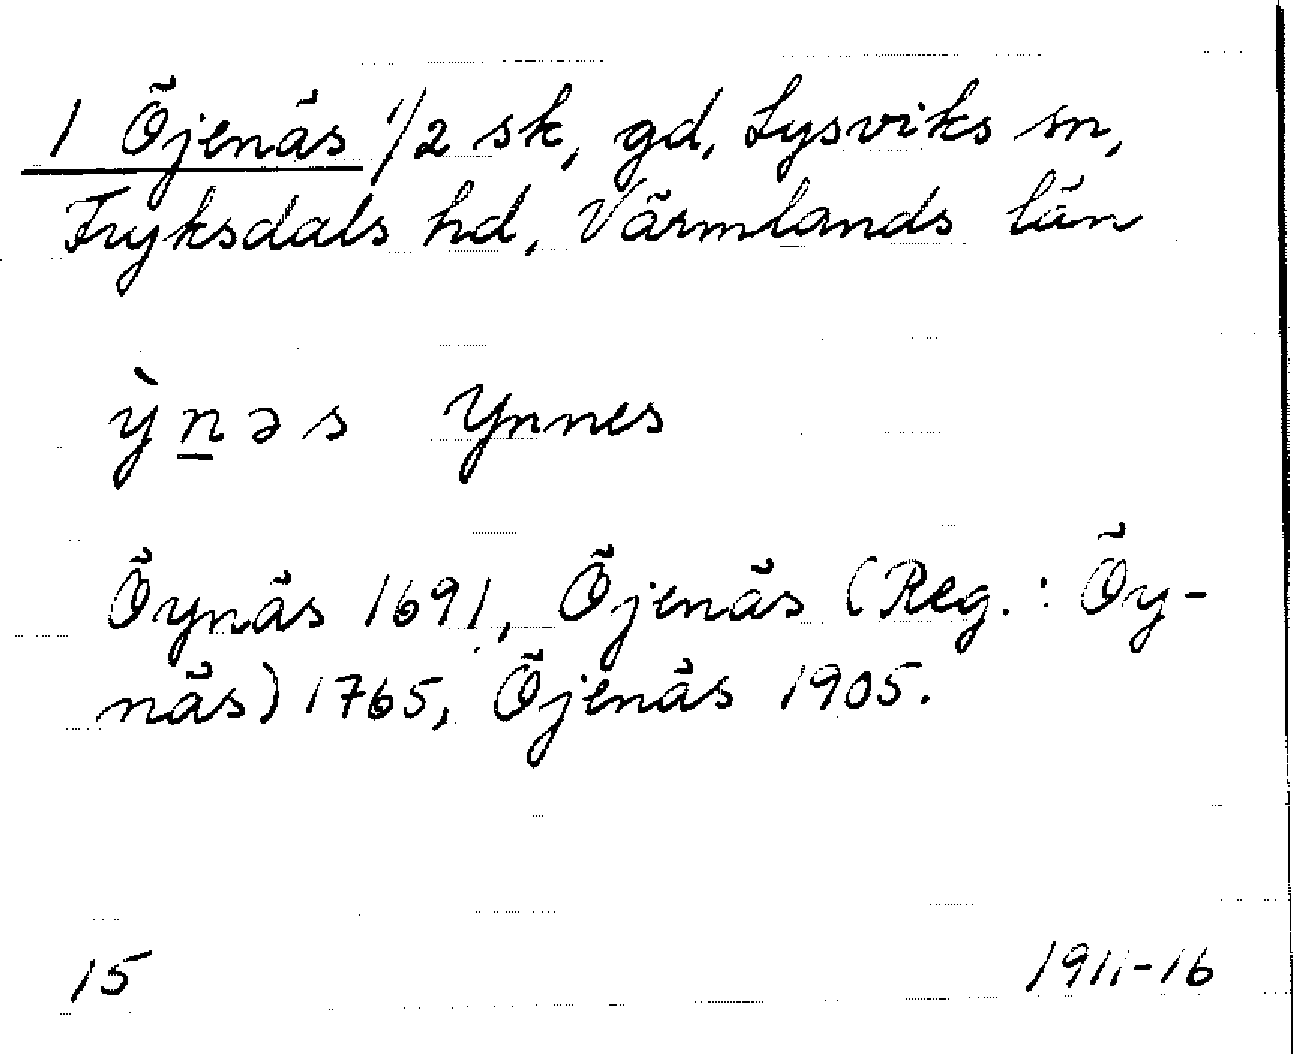 1 Öjenäs 1/2 sk, gd, Lysviks sn,
Fryksdals hd, Värmlands län
ỳn̲əs Ynnes
Öynäs 1691, Öjenäs (Reg.: Öy-
näs) 1765, Öjenäs 1905.
15 1911-16